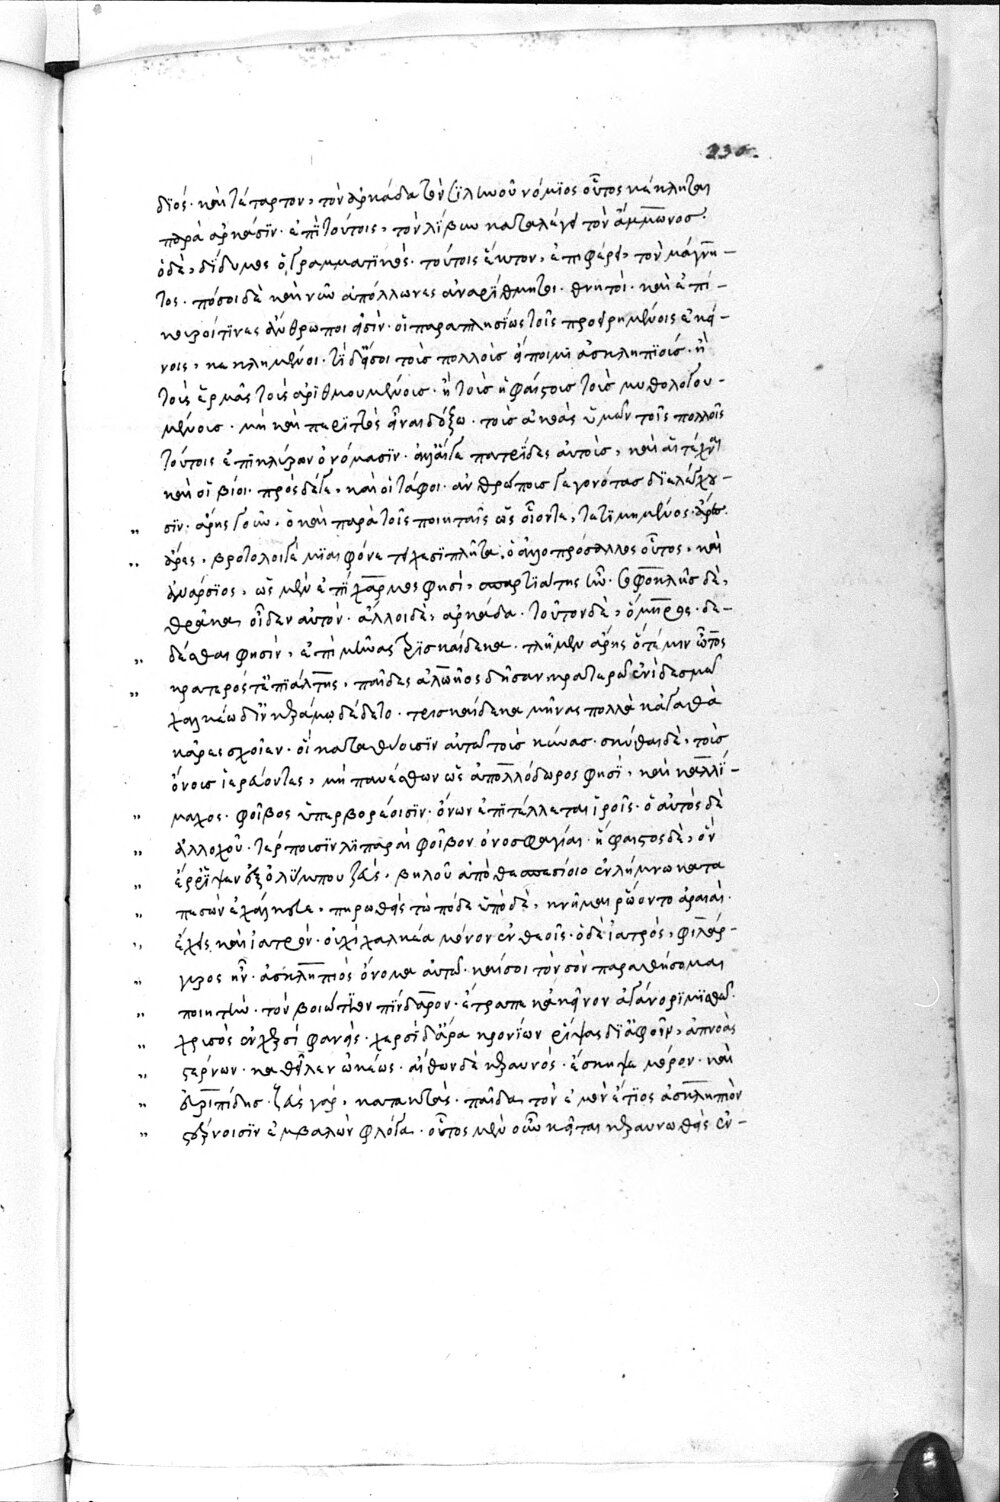 230.
διός· καὶ τέταρτον, τὸν ἀρκάδα τὸν σιληνοῦ νόμιος οὗτος κέκληται
παρὰ ἀρκάσιν· ἐπὶ τούτοις, τὸν λίβυν καταλέγει τὸν ἄμμωνος·
ὁ δὲ, δίδυμος ὁ γραμματικὸς· τούτοις ἕκτον, ἐπιφέρει, τὸν μάγνη-
τος· πόσοι δὲ καὶ νῦν ἀπόλλωνες ἀναρίθμητοι· θνητοὶ· καὶ ἐπί-
κουροί τινες ἄνθρωποι εἰσὶν· οἱ παραπλησίως τοῖς προειρημένοις ἐκεί-
νοις, κεκλημένοι· τί δ' εἴ σοι τοὺς πολλοὺς εἴποιμι ἀσκληπιούς· ἢ
τοὺς ἑρμᾶς τοὺς ἀριθμουμένους· ἢ τοὺς ἡφαίστους τοὺς μυθολογου-
μένους· μὴ καὶ περιττὸς εἶναι δόξω· τοὺς ἀκοὰς ὑμῶν τοῖς πολλοῖς
τούτοις ἐπικλύζων ὀνόμασιν· ἀλλ' αἵ γε πατρίδες αὐτοὺς, καὶ αἱ τέχναι
καὶ οἱ βίοι· πρὸς δέ γε, καὶ οἱ τάφοι· ἀνθρώπους γεγονότας διελέγχου-
σιν· ἄρης γοῦν, ὁ καὶ παρὰ τοῖς ποιηταῖς ὡς οἷόν τε, τετιμημένος· ἄρες
ἄρες, βροτολοιγὲ μιαιφόνε τειχεσιπλῆτα, ὁ ἀλλοπρόσαλλος οὗτος, καὶ
ἀνάρσιος, ὡς μὲν ἐπίχαρμος φησὶ, σπαρτιάτης ἦν· σοφοκλῆς δὲ,
θρᾷκα οἶδεν αὐτόν· ἄλλοι δὲ, ἀρκάδα· τοῦτον δὲ, ὅμηρος· δε-
δέσθαι φησὶν, ἐπὶ μῆνας τρισκαίδεκα· τλῆ μὲν ἄρης ὅτε μιν ὦτος
κρατερός τ' ἐπιάλτης, παῖδες ἀλωῆος δῆσαν κρατερῷ ἐνὶ δεσμῷ
χαλκέῳ δ' ἐν κεράμῳ δέδετο· τρισκαίδεκα μῆνας πολλὰ κἀγαθὰ
κᾶρες σχοῖεν· οἳ καταθύουσιν αὐτῷ τοὺς κύνας· σκύθαι δὲ, τοὺς
ὄνους ἱερεύοντες, μὴ παυέσθων ὡς ἀπολλόδωρος φησὶ, καὶ καλλί-
μαχος· φοῖβος ὑπερβορέοισιν· ὄνων ἐπιτέλλεται ἱροῖς· ὁ αὐτὸς δὲ
ἀλλαχοῦ· τέρπουσιν λιπαραὶ φοῖβον ὀνοσφαγίαι· ἥφαιστος δὲ, ὃν
ἔρριψεν ἐξ ὀλύμπου ζεὺς, βηλοῦ ἀπὸ θεσπεσίοιο ἐν λήμνῳ κατα
πεσὼν ἐχάλκευε, πηρωθεὶς τὼ πόδε ὑπὸ δὲ, κνῆμαι ῥώοντο ἀραιαί·
ἔχεις καὶ ἰατρὸν· οὐχὶ χαλκέα μόνον ἐν θεοῖς· ὁ δὲ ἰατρὸς, φιλάρ-
γυρος ἦν· ἀσκληπιὸς ὄνομα αὐτῷ· καί σοι τὸν σὸν παραθήσομαι
ποιητὴν· τὸν βοιώτιον πίνδαρον· ἔτραπε κἀκεῖνον ἀγάνορι μισθῷ·
χρυσὸς ἐν χερσὶ φανείς· χερσὶ δ' ἄρα κρονίων ῥίψας δι' ἀμφοῖν, ἀπνοὰς
στέρνων· καθεῖλεν ὠκέως· αἴθων δὲ κεραυνός· ἔσκηψε μόρον· καὶ
εὐριπίδης· ζεὺς γάρ, κατακτὰς· παῖδα τὸν ἐμὸν αἴτιος ἀσκληπιὸν
στέρνοισιν ἐμβαλὼν φλόγα· οὗτος μὲν οὖν κεῖται κεραυνωθεὶς ἐν-